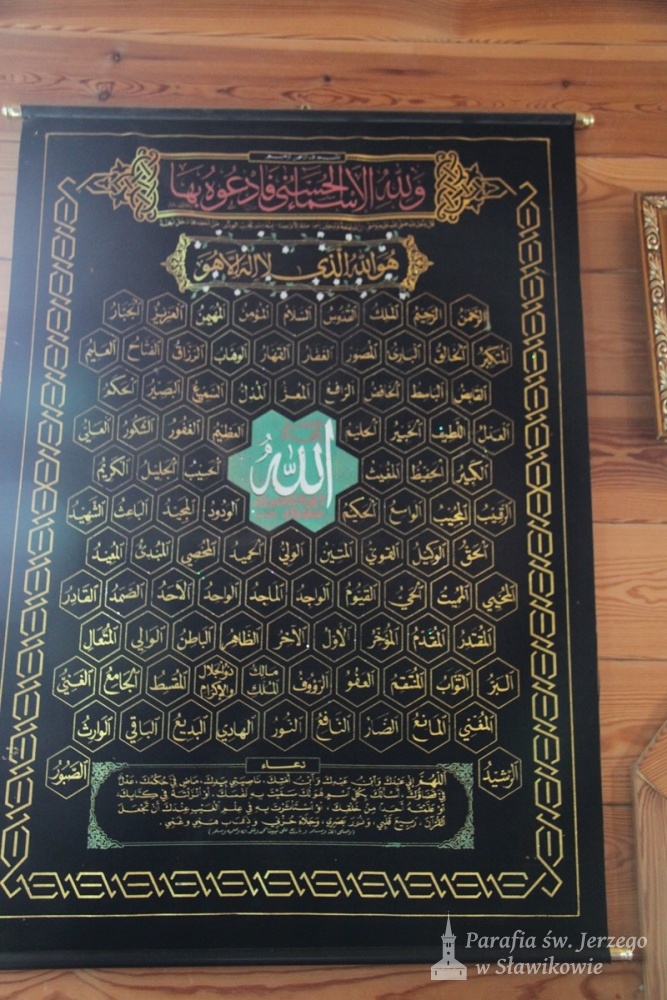 ولله الأسماء الحسنى فادعوه بها
هو الله الذي لا اله الا هو
الرحمن الرحيم الملك القدوس السلام المؤمن المهيمن العزيز الجبار
المتكبر الخالق البارئ المصور الغفار القهار الوهاب الرزاق الفتاح العليم
القابض الباسط الخافض الرافع المعز المذل السميع البصير الحكم
العدل اللطيف الخبير الحليم العظيم الغفور الشكور العلي
الله
الكبير الحفيظ المغيث الحسيب الجليل الكريم
الرقيب المجيب الواسع الحكيم الودود المجيد الباعث الشهيد
الحق الوكيل القوي المتين الولي الحميد المحصي المبدئ المعيد
المحيي المميت الحي القيوم الوجد الماجد الواحد الأحد الصمد القادر
المقتدر المقدم المؤخر الأول الآخر الظاهر الباطن الوالي المتعال
البر التواب المنتقم العفو الرؤوف مالك الملك ذو الجلال والإكرام المقسط الجامع الغني
المغني المانع الضار النافع النور الهادي البديع الباقي الوارث
الرشيد الصبور
دعاء
اللهم إني عبدك وابن عبدك وابن أمتك، ناصيتي بيدك، ماض في حكمك، عدل
في قضاؤك، أسألك بكل اسم هو لك سميت به نفسك، أو أنزلته في كتابك،
أو علمته أحدا من خلقك، أو استأثرت به في علم الغيب عندك أن تجعل
القرآن ربيع قلبي، ونور بصري، وجلاء حزني، وذهاب همي وغمي.
Parafia św. Jerzego
w Sławikowie